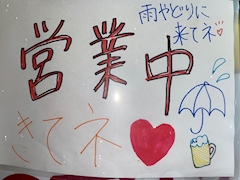 雨やどりに
来てネ♡
営業中
きてネ